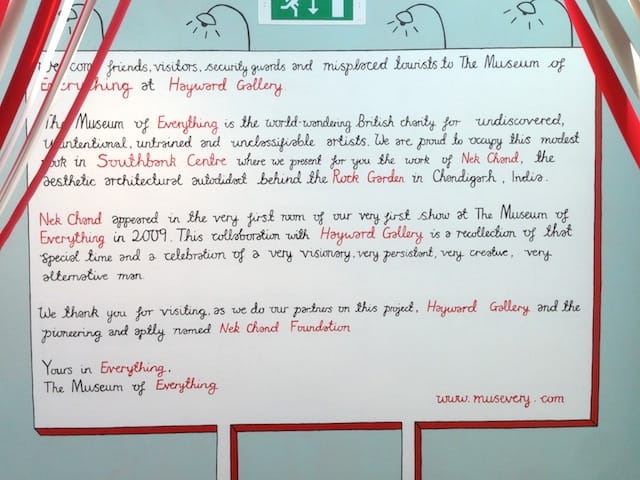 Welcome friends, visitors, security guards and misplaced tourists to The Museum of
Everything at Hayward Gallery.
The Museum of Everything is the world-wandering British charity for undiscovered,
unintentional, untrained and unclassifiable artists. We are proud to occupy this modest
nook in Southbank Centre where we present for you the work of Nek Chand, the
aesthetic architectural autodidact behind the Rock Garden in Chandigarh, India.
Nek Chand appeared in the very first room of our very first show at The Museum of
Everything in 2009. This collaboration with Hayward Gallery is a recollection of that
special time and a celebration of a very visionary, very persistant, very creative, very
alternative man.
We thank you for visiting, as we do our partners on this project, Hayward Gallery and the
pioneering and aptly named Nek Chand Foundation
Yours in Everything,
The Museum of Everything
www.musevery.com